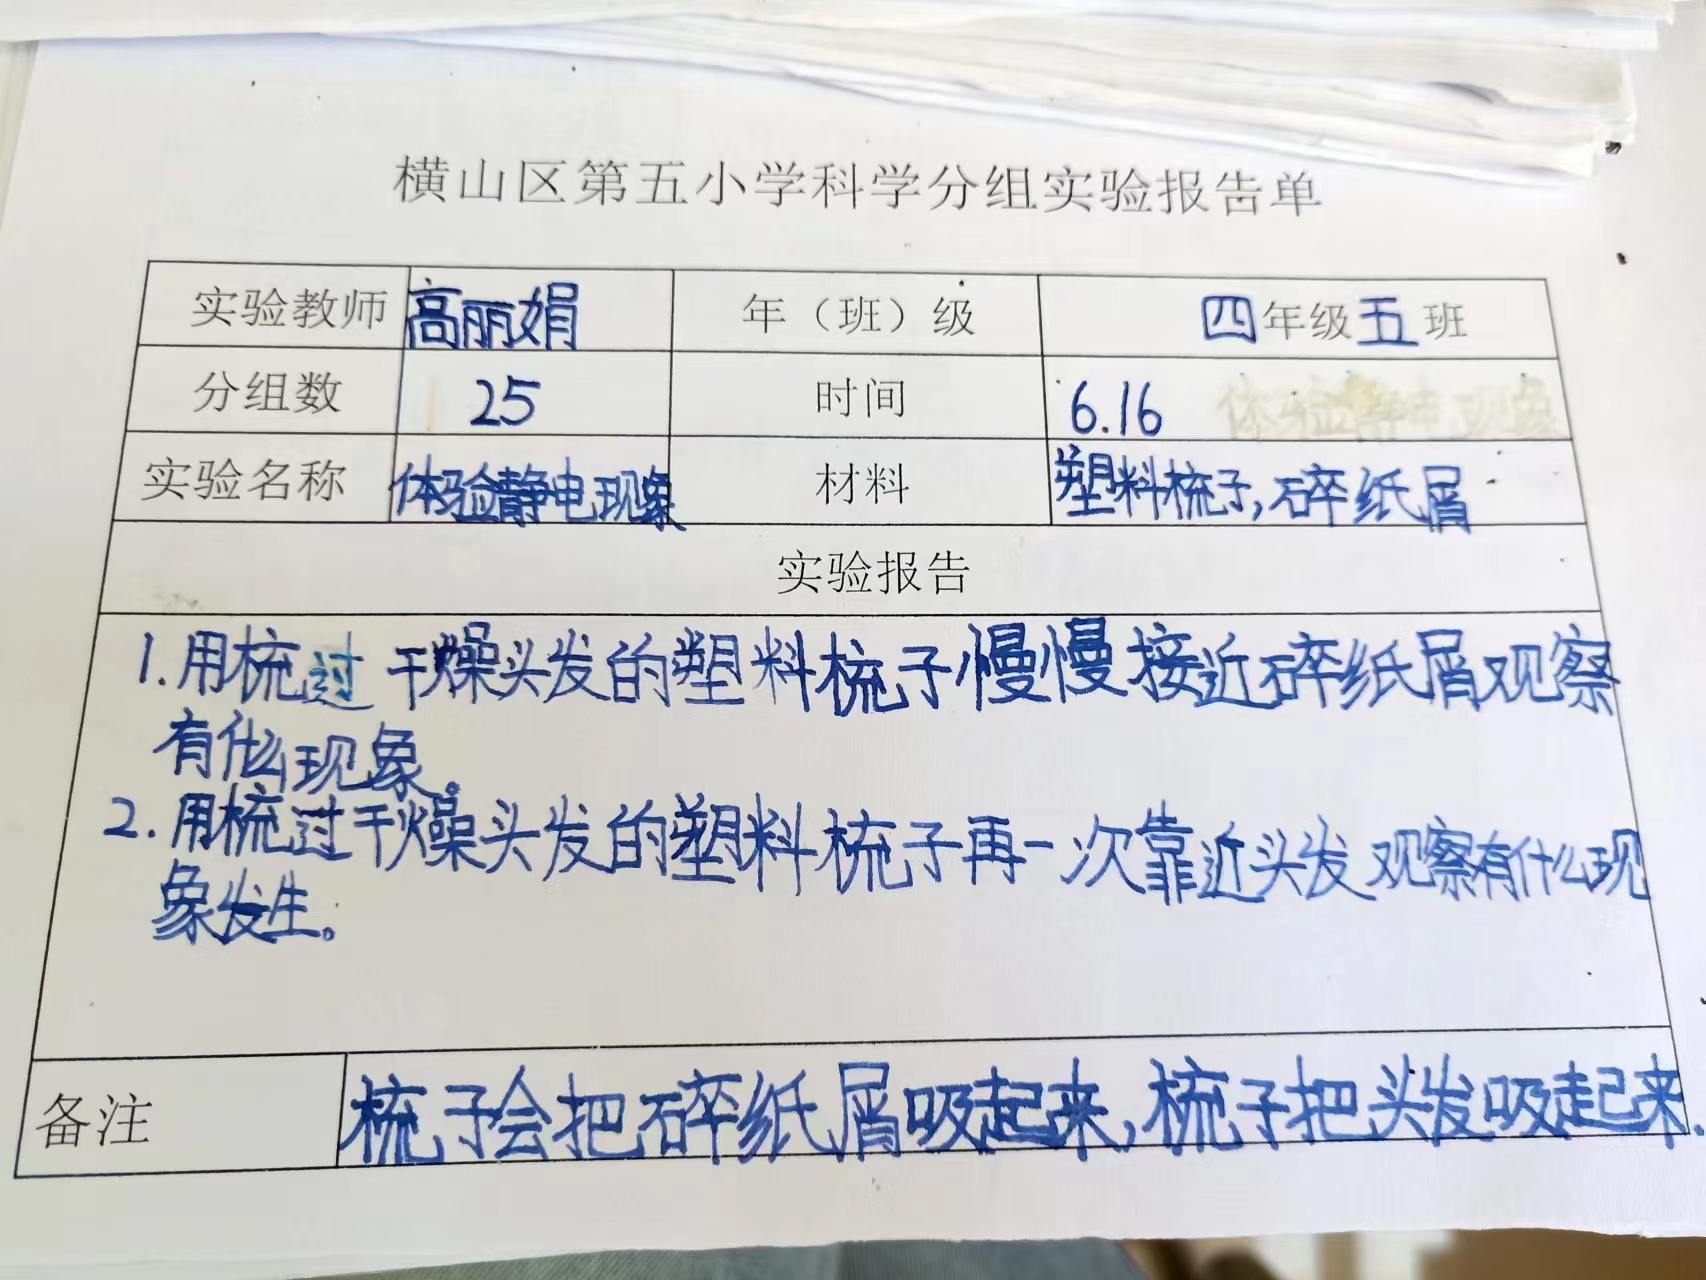 横山区第五小学科学分组实验报告单
实验教师 高丽娟 年（班）级 四年级五班
分组数 25 时间 6.16 体验静电现象
实验名称 体验静电现象 材料 塑料梳子,碎纸屑
实验报告
1.用梳过干燥头发的塑料梳子慢慢接近碎纸屑观察
有什么现象。
2.用梳过干燥头发的塑料梳子再一次靠近头发观察有什么现
象发生。
备注 梳子会把碎纸屑吸起来,梳子把头发吸起来.